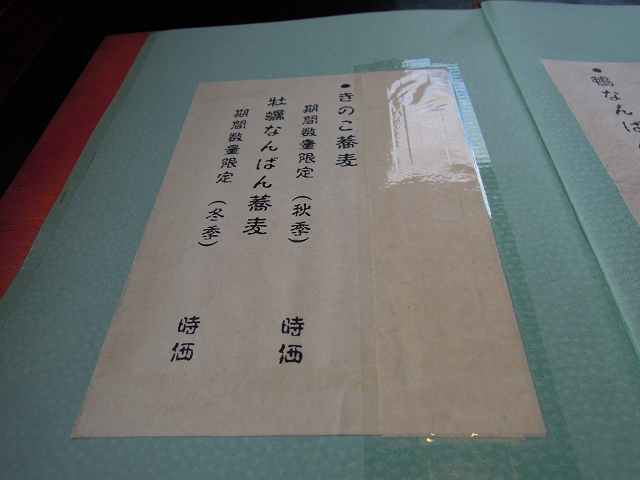 鴨なんば
●きのこ蕎麦
期間数量限定（秋季）　時価
牡蠣なんばん蕎麦
期間数量限定（冬季）　時価